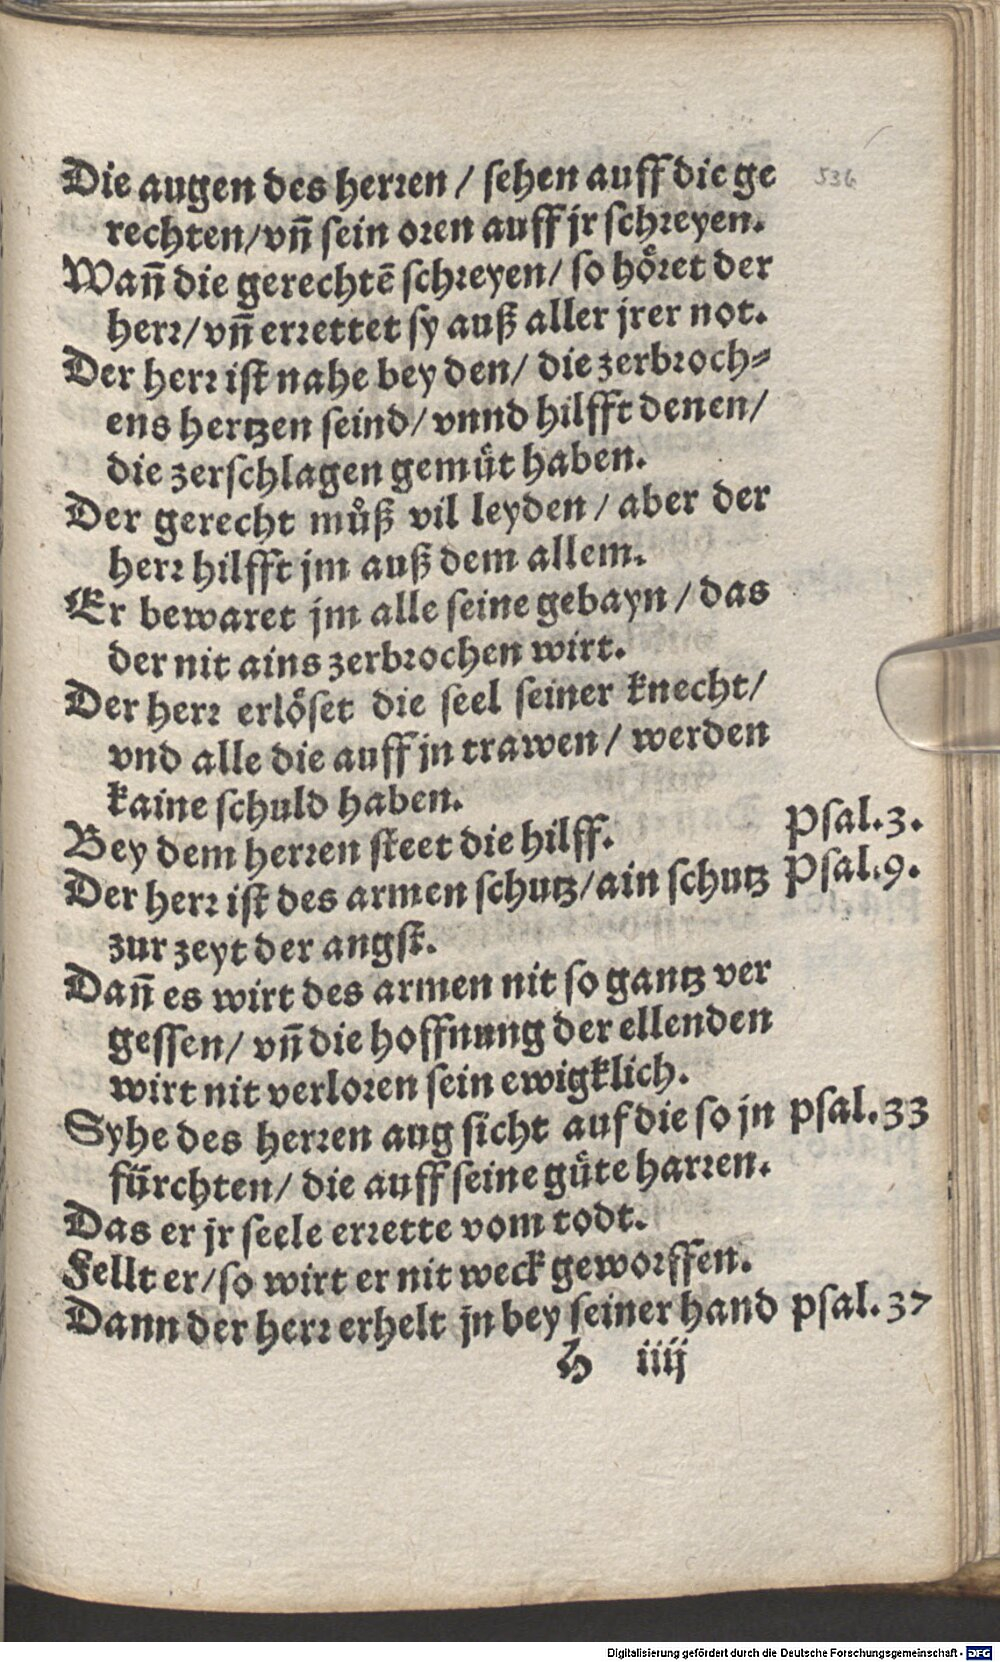 Die augen des herren / sehen auff die ge
rechten/vñ sein oren auff jr schreyen.
Wañ die gerechtẽ schreyen/ so hoͤret der
herr/vñ errettet sy auß aller jrer not.
Der herr ist nahe bey den/ die zerbroch⸗
ens hertzen seind/ vnnd hilfft denen/
die zerschlagen gemuͤt haben.
Der gerecht muͦß vil leyden / aber der
herr hilfft jm auß dem allem.
Er bewaret jm alle seine gebayn / das
der nit ains zerbrochen wirt.
Der herr erloͤset die seel seiner knecht/
vnd alle die auff jn trawen / werden
kaine schuld haben.
Bey dem herren steet die hilff. Psal.3.
Der herr ist des armen schutz/ain schutz Psal.9.
zur zeyt der angst.
Dañ es wirt des armen nit so gantz ver
gessen/ vñ die hoffnung der ellenden
wirt nit verloren sein ewigklich.
Syhe des herren aug sicht auf die so jn psal.33
fürchten/ die auff seine guͤte harren.
Das er jr seele errette vom todt.
Fellt er/so wirt er nit weck geworffen.
Dann der herr erhelt jn bey seiner hand psal.37
h iiij
536
Digitalisierung gefördert durch die Deutsche Forschungsgemeinschaft - DFG